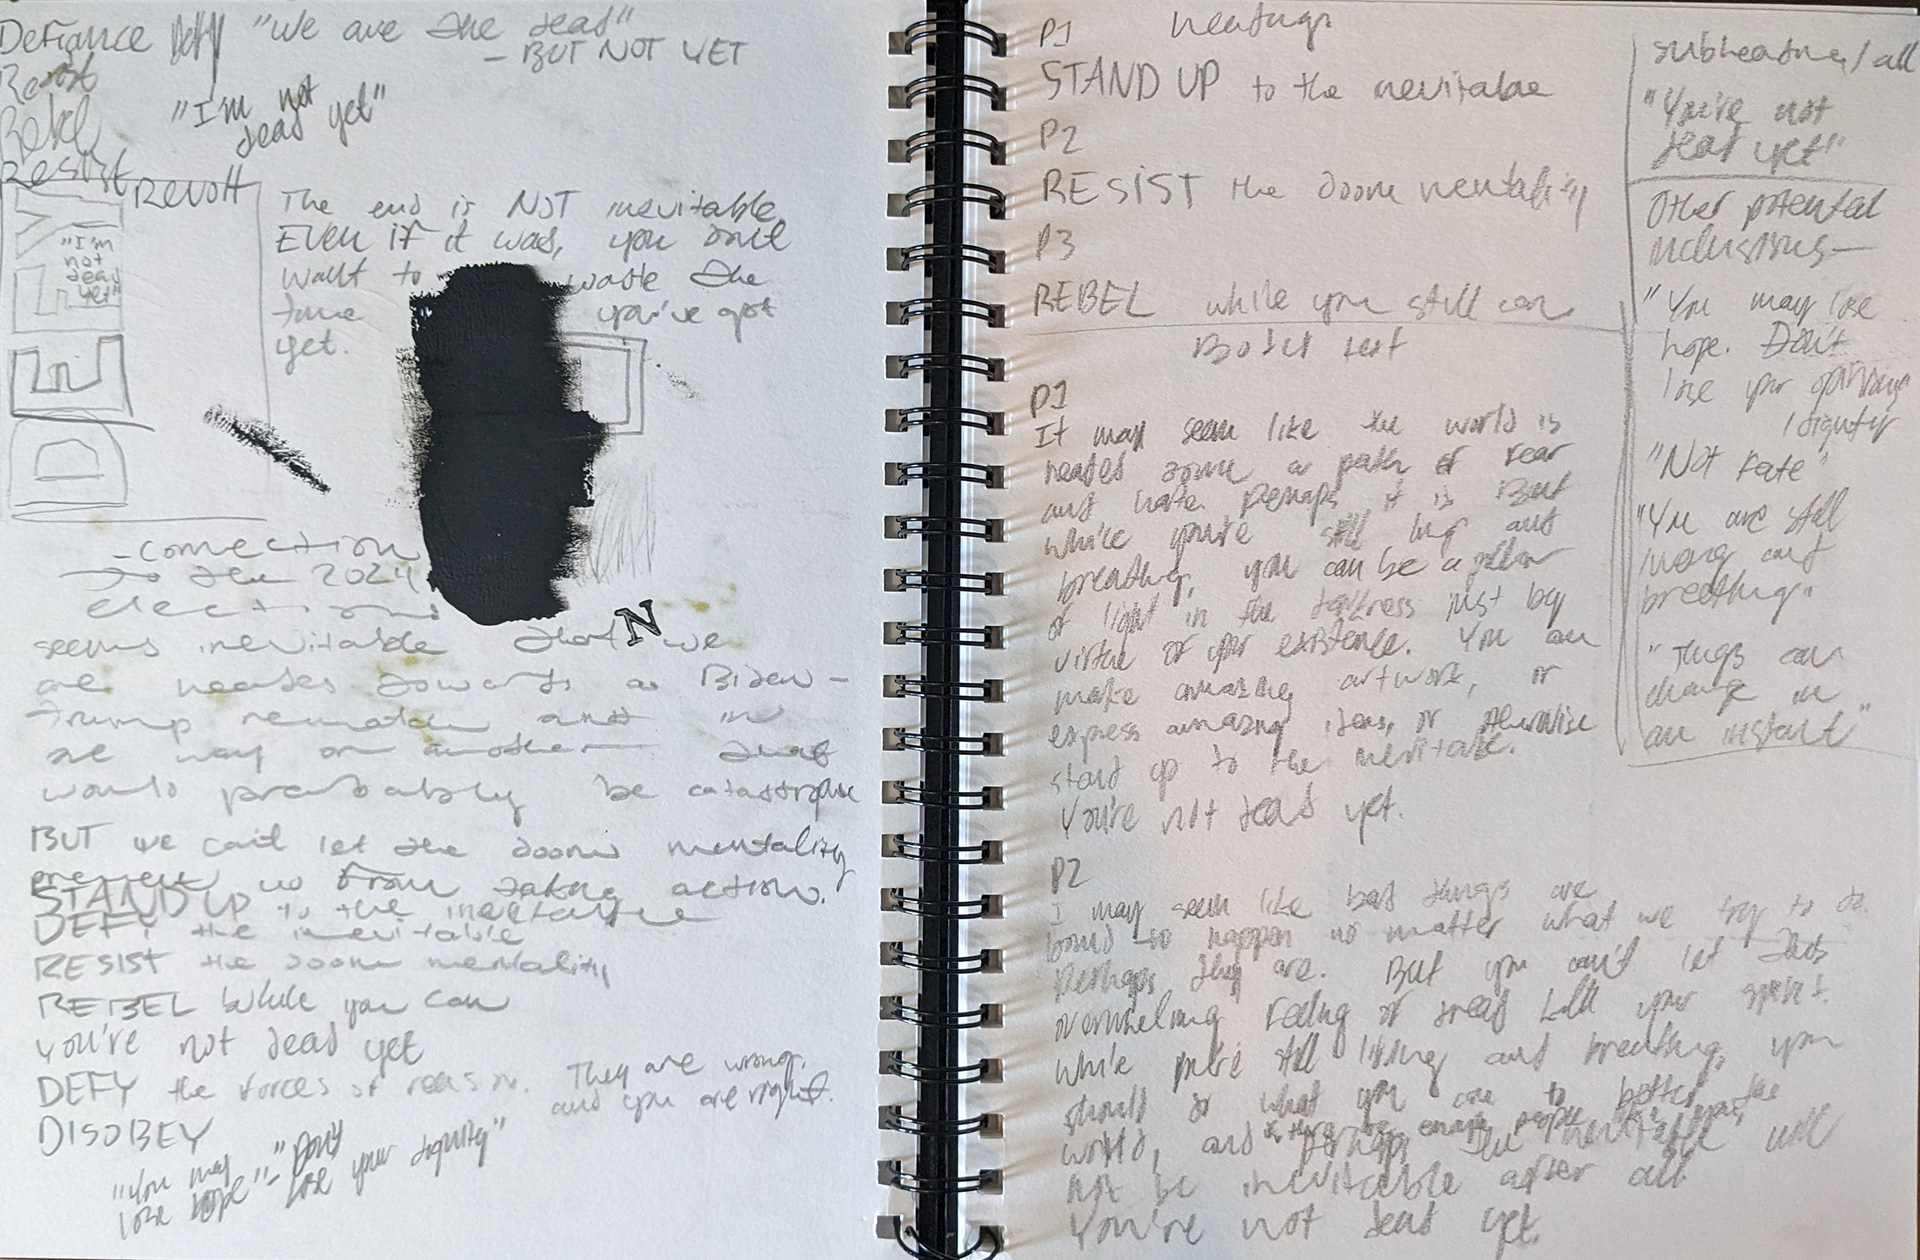 Defiance Defy "We are the dead"
- BUT NOT YET
Resist
Rebel "I'm not
dead yet"
Resist Revolt
DEFY
"I'm
not
dead
yet"
The end is NOT inevitable,
EVEN IF it was, you don't
want to waste the
time you've got
yet.
- connection
to the 2024
elections
N
seems inevitable that we
are headed towards a Biden-
Trump rematch and in
one way or another that
would probably be catastrophic
BUT we can't let the doom mentality
prevent us from taking action.
STAND UP to the inevitable
DEFY the inevitable
RESIST the doom mentality
REBEL while you can
you're not dead yet
DEFY the forces of reason. They are wrong,
and you are right.
DISOBEY
"You may
lose hope" - "Don't
lose your dignity"
P1 headings
STAND UP to the inevitable
P2
RESIST the doom mentality
P3
REBEL while you still can
Body text
P1
It may seem like the world is
headed down a path of fear
and hate. Perhaps it is. But
while you're still living and
breathing, you can be a pillar
of light in the darkness just by
virtue of your existence. You can
make amazing artwork, or
express amazing ideas, or otherwise
stand up to the inevitable.
You're not dead yet.
P2
I may seem like bad things are
bound to happen no matter what we try to do.
Perhaps they are. But you can't let this
overwhelming feeling of dread kill your spirit.
While you're still living and breathing, you
should do what you can to better the
world, and if there are enough people
perhaps the inevitable will
not be inevitable after all
You're not dead yet.
subheading / all
"You're not
dead yet"
Other potential
inclusions—
"You may lose
hope. Don't
lose your
/ dignity
"Not fate"
"You are still
living and
breathing"
"Things can
change in
an instant"